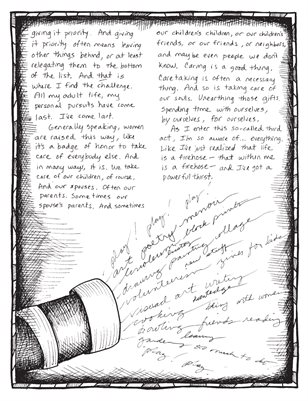 giving it priority. And giving
it priority often means leaving
other things behind, or at least
relegating them to the bottom
of the list. And that is
where I find the challenge.
All my adult life, my
personal pursuits have come
last. I've come last.
Generally speaking, women
are raised this way, like
it's a badge of honor to take
care of everybody else. And
in many ways, it is. We take
care of our children, of course,
And our spouses. Often our
parents. Sometimes our
spouse's parents. And sometimes
our children's children, or our children's
friends, or our friends, or neighbors,
and maybe even people we don't
know. Caring is a good thing.
Caretaking is often a necessary
thing. And so is taking care of
our souls. Unearthing those gifts.
Spending time with ourselves,
by ourselves, for ourselves.
As I enter this so-called third
act, I'm so aware of... everything.
Like I've just realized that life
is a firehose — that within me
is a firehose — and I've got a
powerful thirst.
play! play! play!
art poetry memoir
block prints
drawing painting collage
new stuff
volunteerism zines for kids
visual art writing
cooking knowledge
boating friends reading
gardening learning so much to do
play! play!